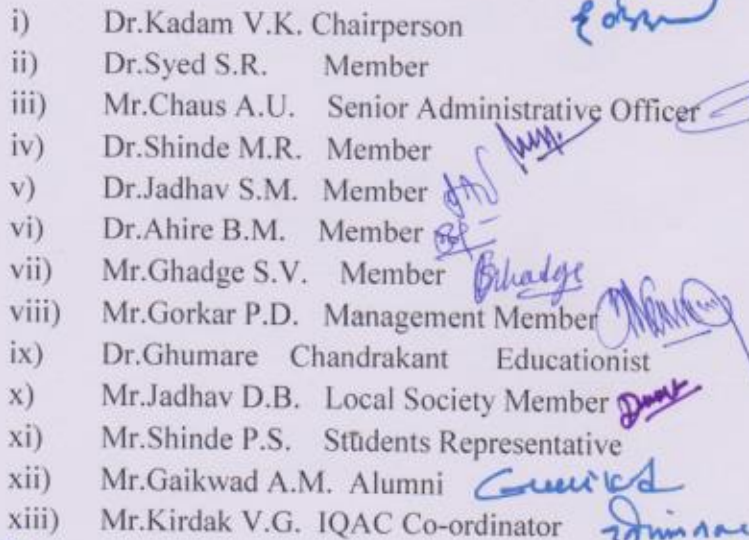 i) Dr.Kadam V.K. Chairperson
ii) Dr.Syed S.R. Member
iii) Mr.Chaus A.U. Senior Administrative Officer
iv) Dr.Shinde M.R. Member
v) Dr.Jadhav S.M. Member
vi) Dr.Ahire B.M. Member
vii) Mr.Ghadge S.V. Member
viii) Mr.Gorkar P.D. Management Member
ix) Dr.Ghumare Chandrakant Educationist
x) Mr.Jadhav D.B. Local Society Member
xi) Mr.Shinde P.S. Students Representative
xii) Mr.Gaikwad A.M. Alumni
xiii) Mr.Kirdak V.G. IQAC Co-ordinator